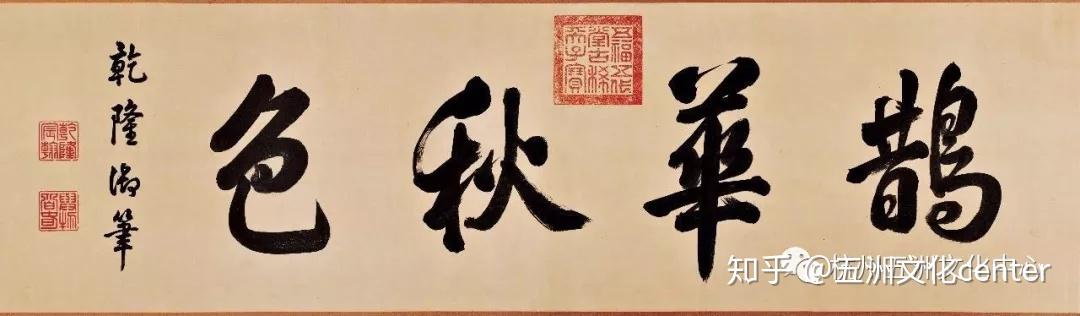 鵲華秋色
乾隆御筆
五福五代
堂古稀
天子寶
乾隆
宸翰
知乎 @五洲文化center